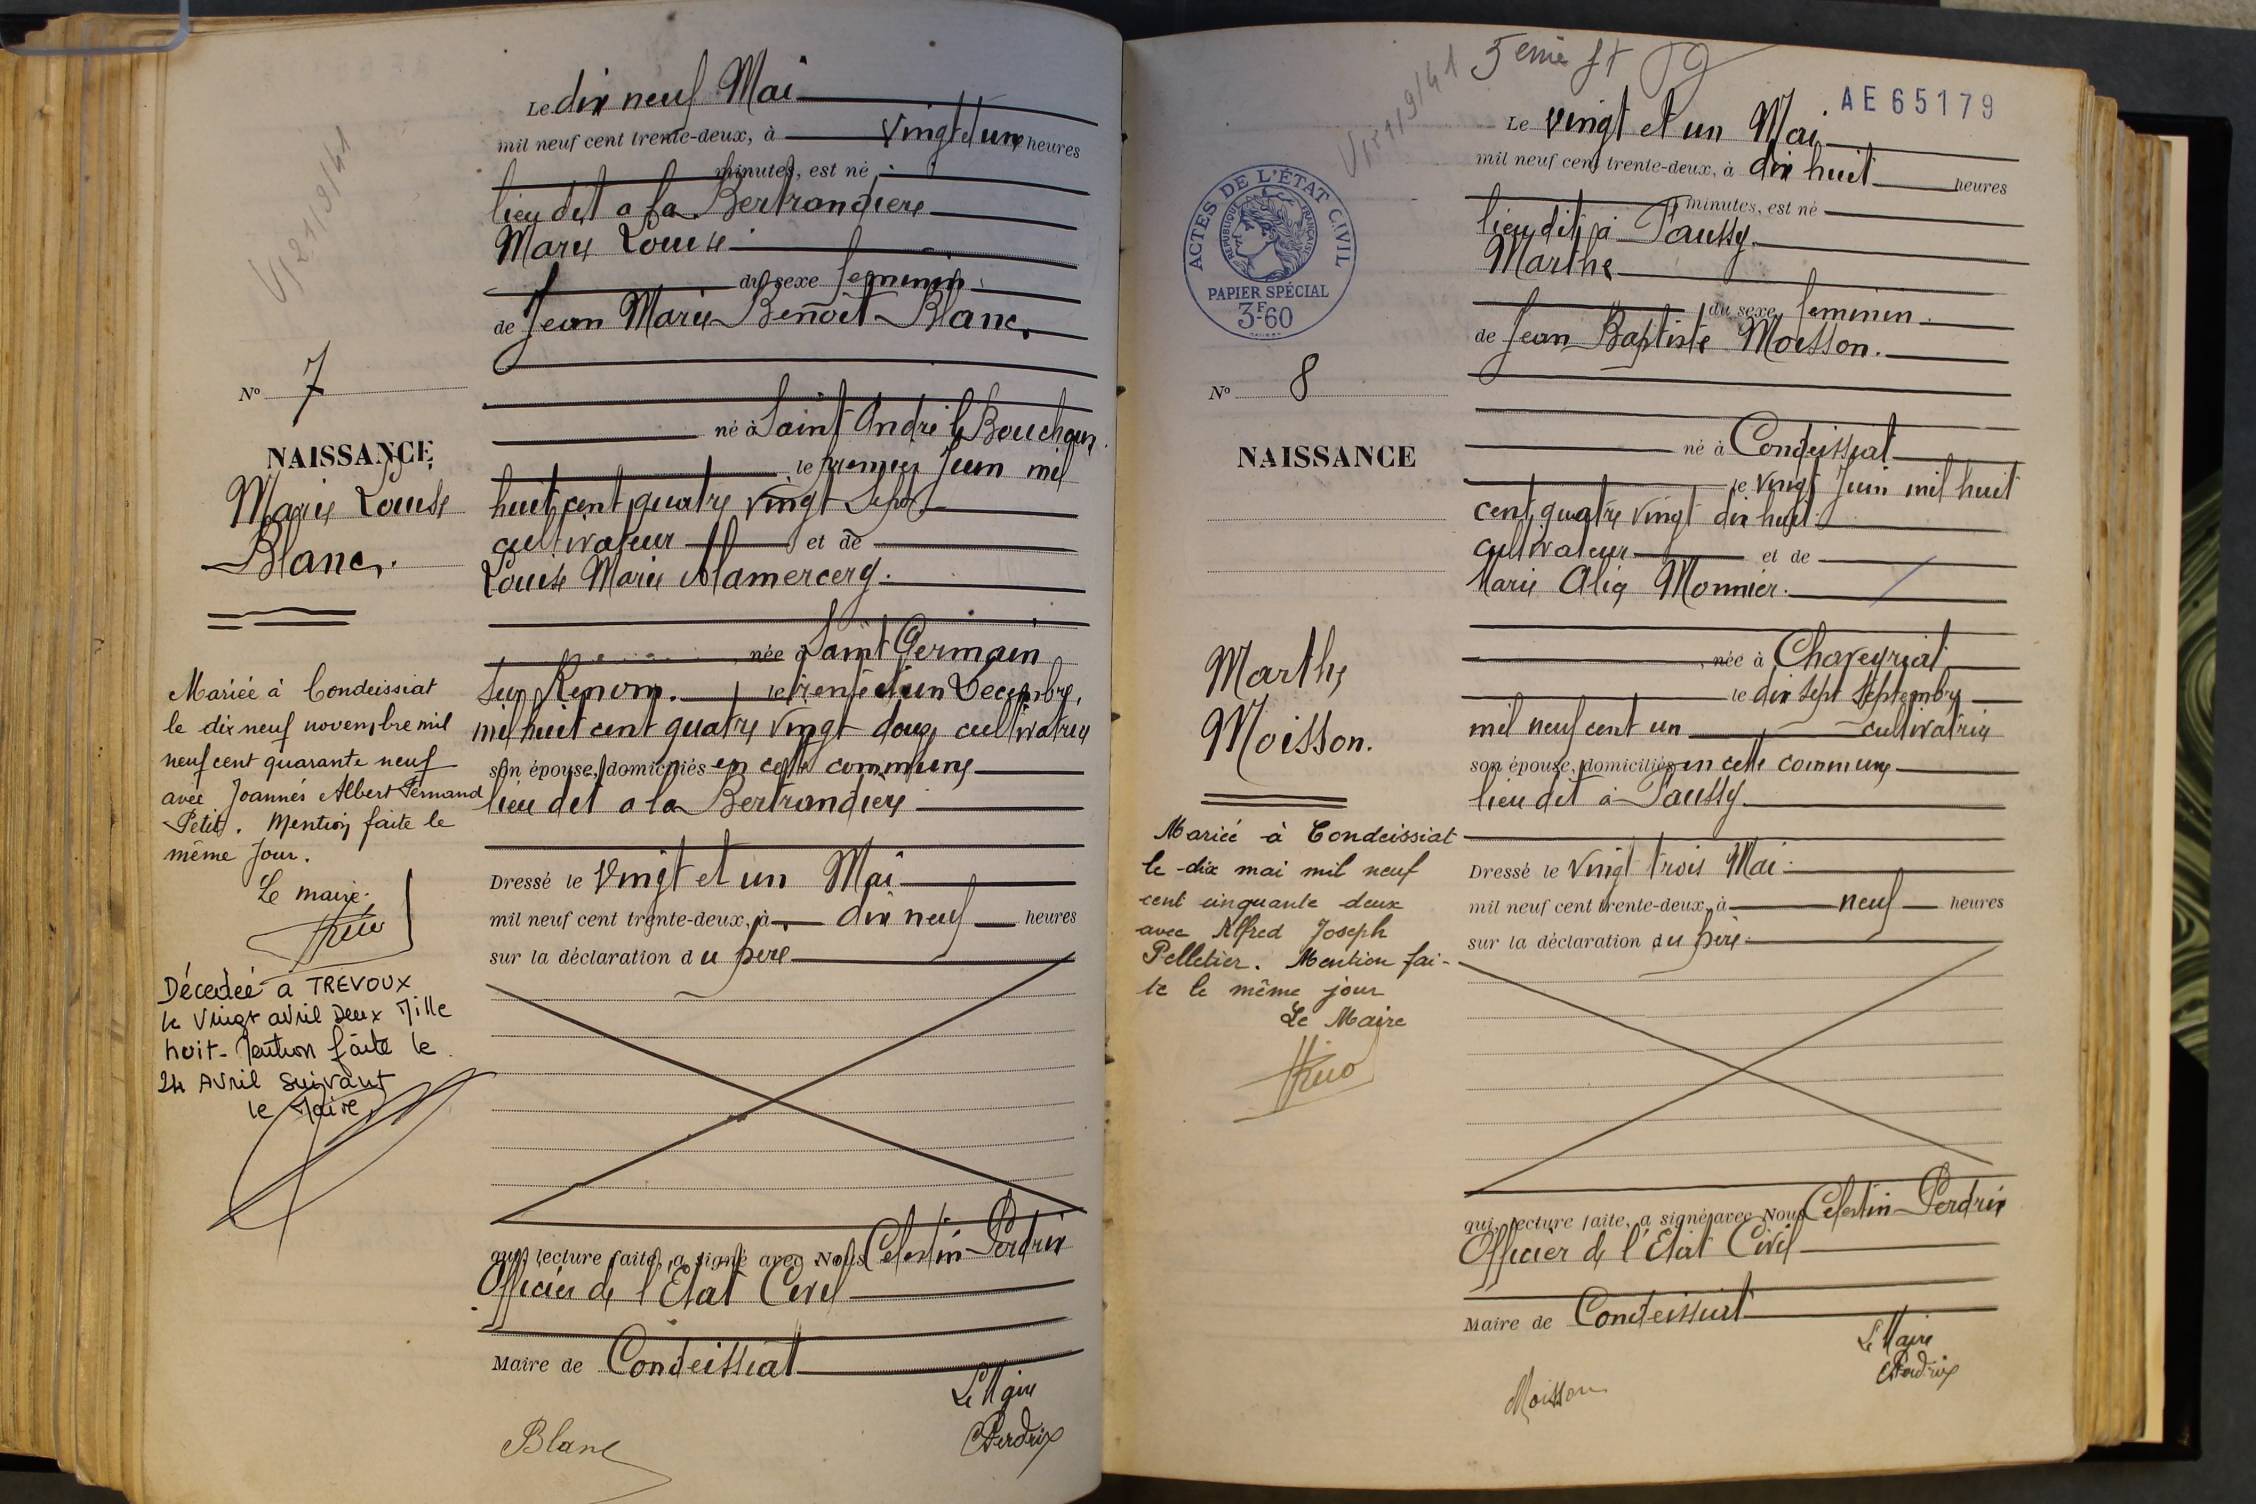 V, 21/9/41
Le dix neuf Mai
mil neuf cent trente-deux, à vingt et une heures
minutes, est né
lieu dit a la Bertrandiere
Marie Louise
du sexe feminin
de Jean Marie Benoît Blanc.
né à Saint André le Bouchoux.
le premier Juin mil
huit cent quatre vingt Sept
cultivateur et de
Louise Marie Mamercery.
née à Saint Germain
Sur Renom. le trente et un Decembre,
mil huit cent quatre vingt douze cultivatrice
son épouse, domiciliés en cette commune
lieu dit a la Bertrandiere
Dressé le vingt et un Mai
mil neuf cent trente-deux, à dix neuf heures
sur la déclaration du père
qui, lecture faite, a signé avec Nous Celestin Perdrix
Officier de l'Etat Civil
Maire de Condeissiat
Le Maire
Blanc
CPerdrix
N° 7
NAISSANCE
Marie Louise
Blanc.
Mariée à Condeissiat
le dix neuf novembre mil
neuf cent quarante neuf
avec Joannés Albert Fernand
Petit. Mention faite le
même jour.
Le maire.
Décedée a TREVOUX
le Vingt avril Deux Mille
huit - Mention faite le
24 Avril suivant
le Maire
5 eme
V, 21/9/41
AE 65179
Le vingt et un Mai
mil neuf cent trente-deux, à dix huit heures
minutes, est né
lieu dit à Paussy.
Marthe
du sexe feminin.
de Jean Baptiste Moisson.
né à Condeissiat
le vingt Juin mil huit
cent quatre vingt dix huit
cultivateur et de
Marie Alia Monnier.
née à Chaveyriat
le dix sept Septembre
mil neuf cent un cultivatrice
son épouse, domiciliés en cette commune
lieu dit à Paussy.
Dressé le vingt trois Mai
mil neuf cent trente-deux, à neuf heures
sur la déclaration du père
qui, lecture faite, a signé avec Nous Celestin Perdrix
Officier de l'Etat Civil
Maire de Condeissiat
Le Maire
CPerdrix
Moisson
ACTES DE L'ÉTAT CIVIL
RÉPUBLIQUE FRANÇAISE
PAPIER SPÉCIAL
3F60
N° 8
NAISSANCE
Marthe
Moisson.
Mariée à Condeissiat
le dix mai mil neuf
cent cinquante deux
avec Alfred Joseph
Pelletier. Mention fai-
te le même jour
Le Maire